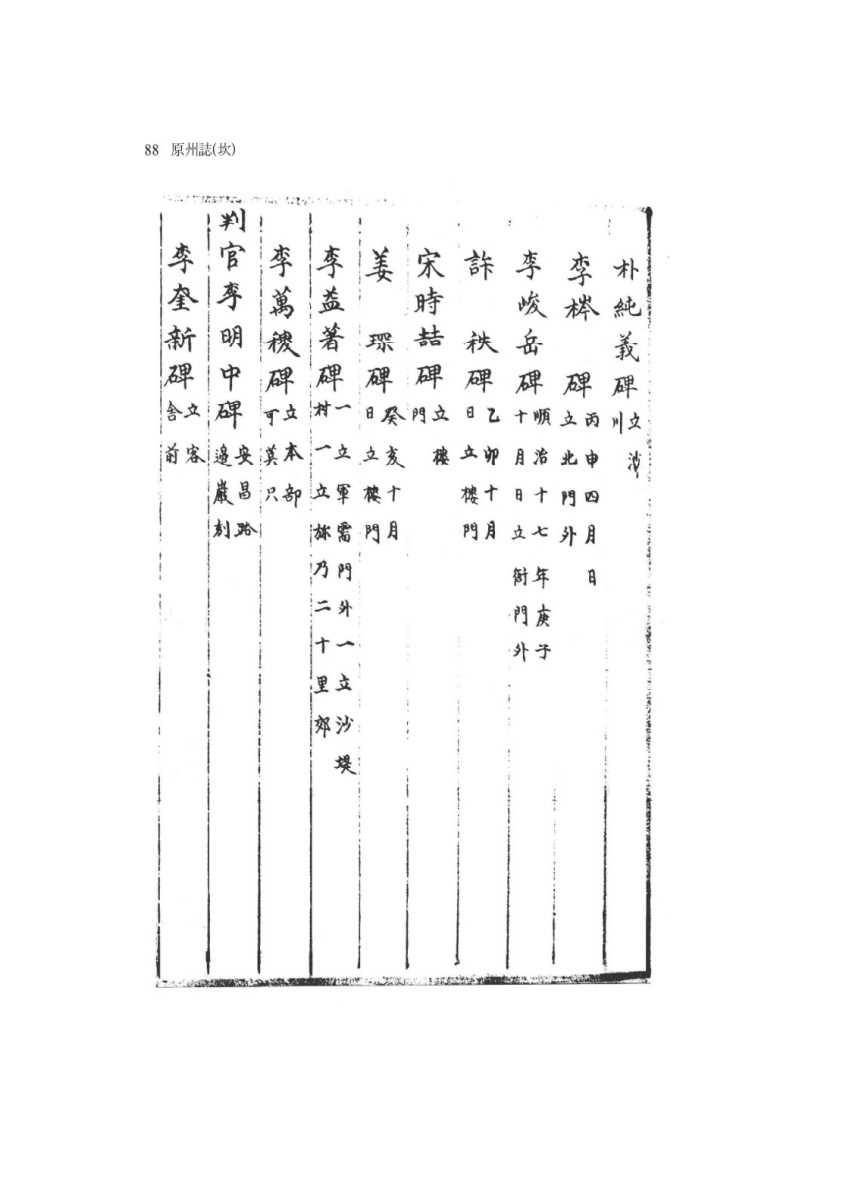 88 原州誌(坎)
朴純義碑 立沙川
李梣碑 丙申四月日立北門外
李峻岳碑 順治十七年庚子十月日立衙門外
許秩碑 乙卯十月日立樓門
宋時喆碑 立樓門
姜琛碑 癸亥十月日立樓門
李益著碑 一立軍需門外一立沙堤村一立㫆乃二十里郊
李萬稷碑 立本部可莫只
判官李明中碑 安昌路邊巖刻
李奎新碑 立客舍前